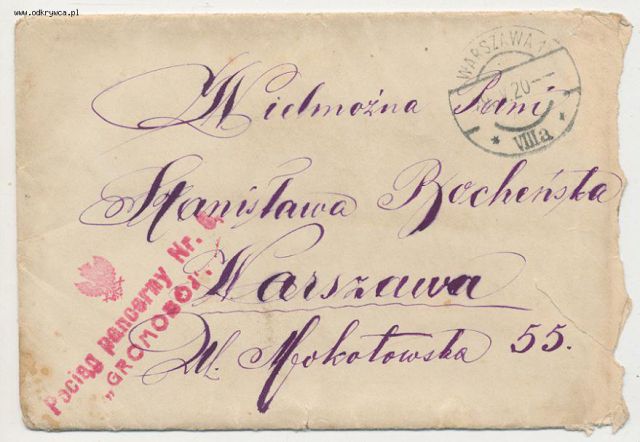 www.odkrywca.pl
WARSZAWA 1
V 20
* VIII a *
Wielmożna Pani
Stanisława Bocheńska
Warszawa
Ul. Mokotowska 55.
Pociąg pancerny Nr.
„GROMOBOJ"